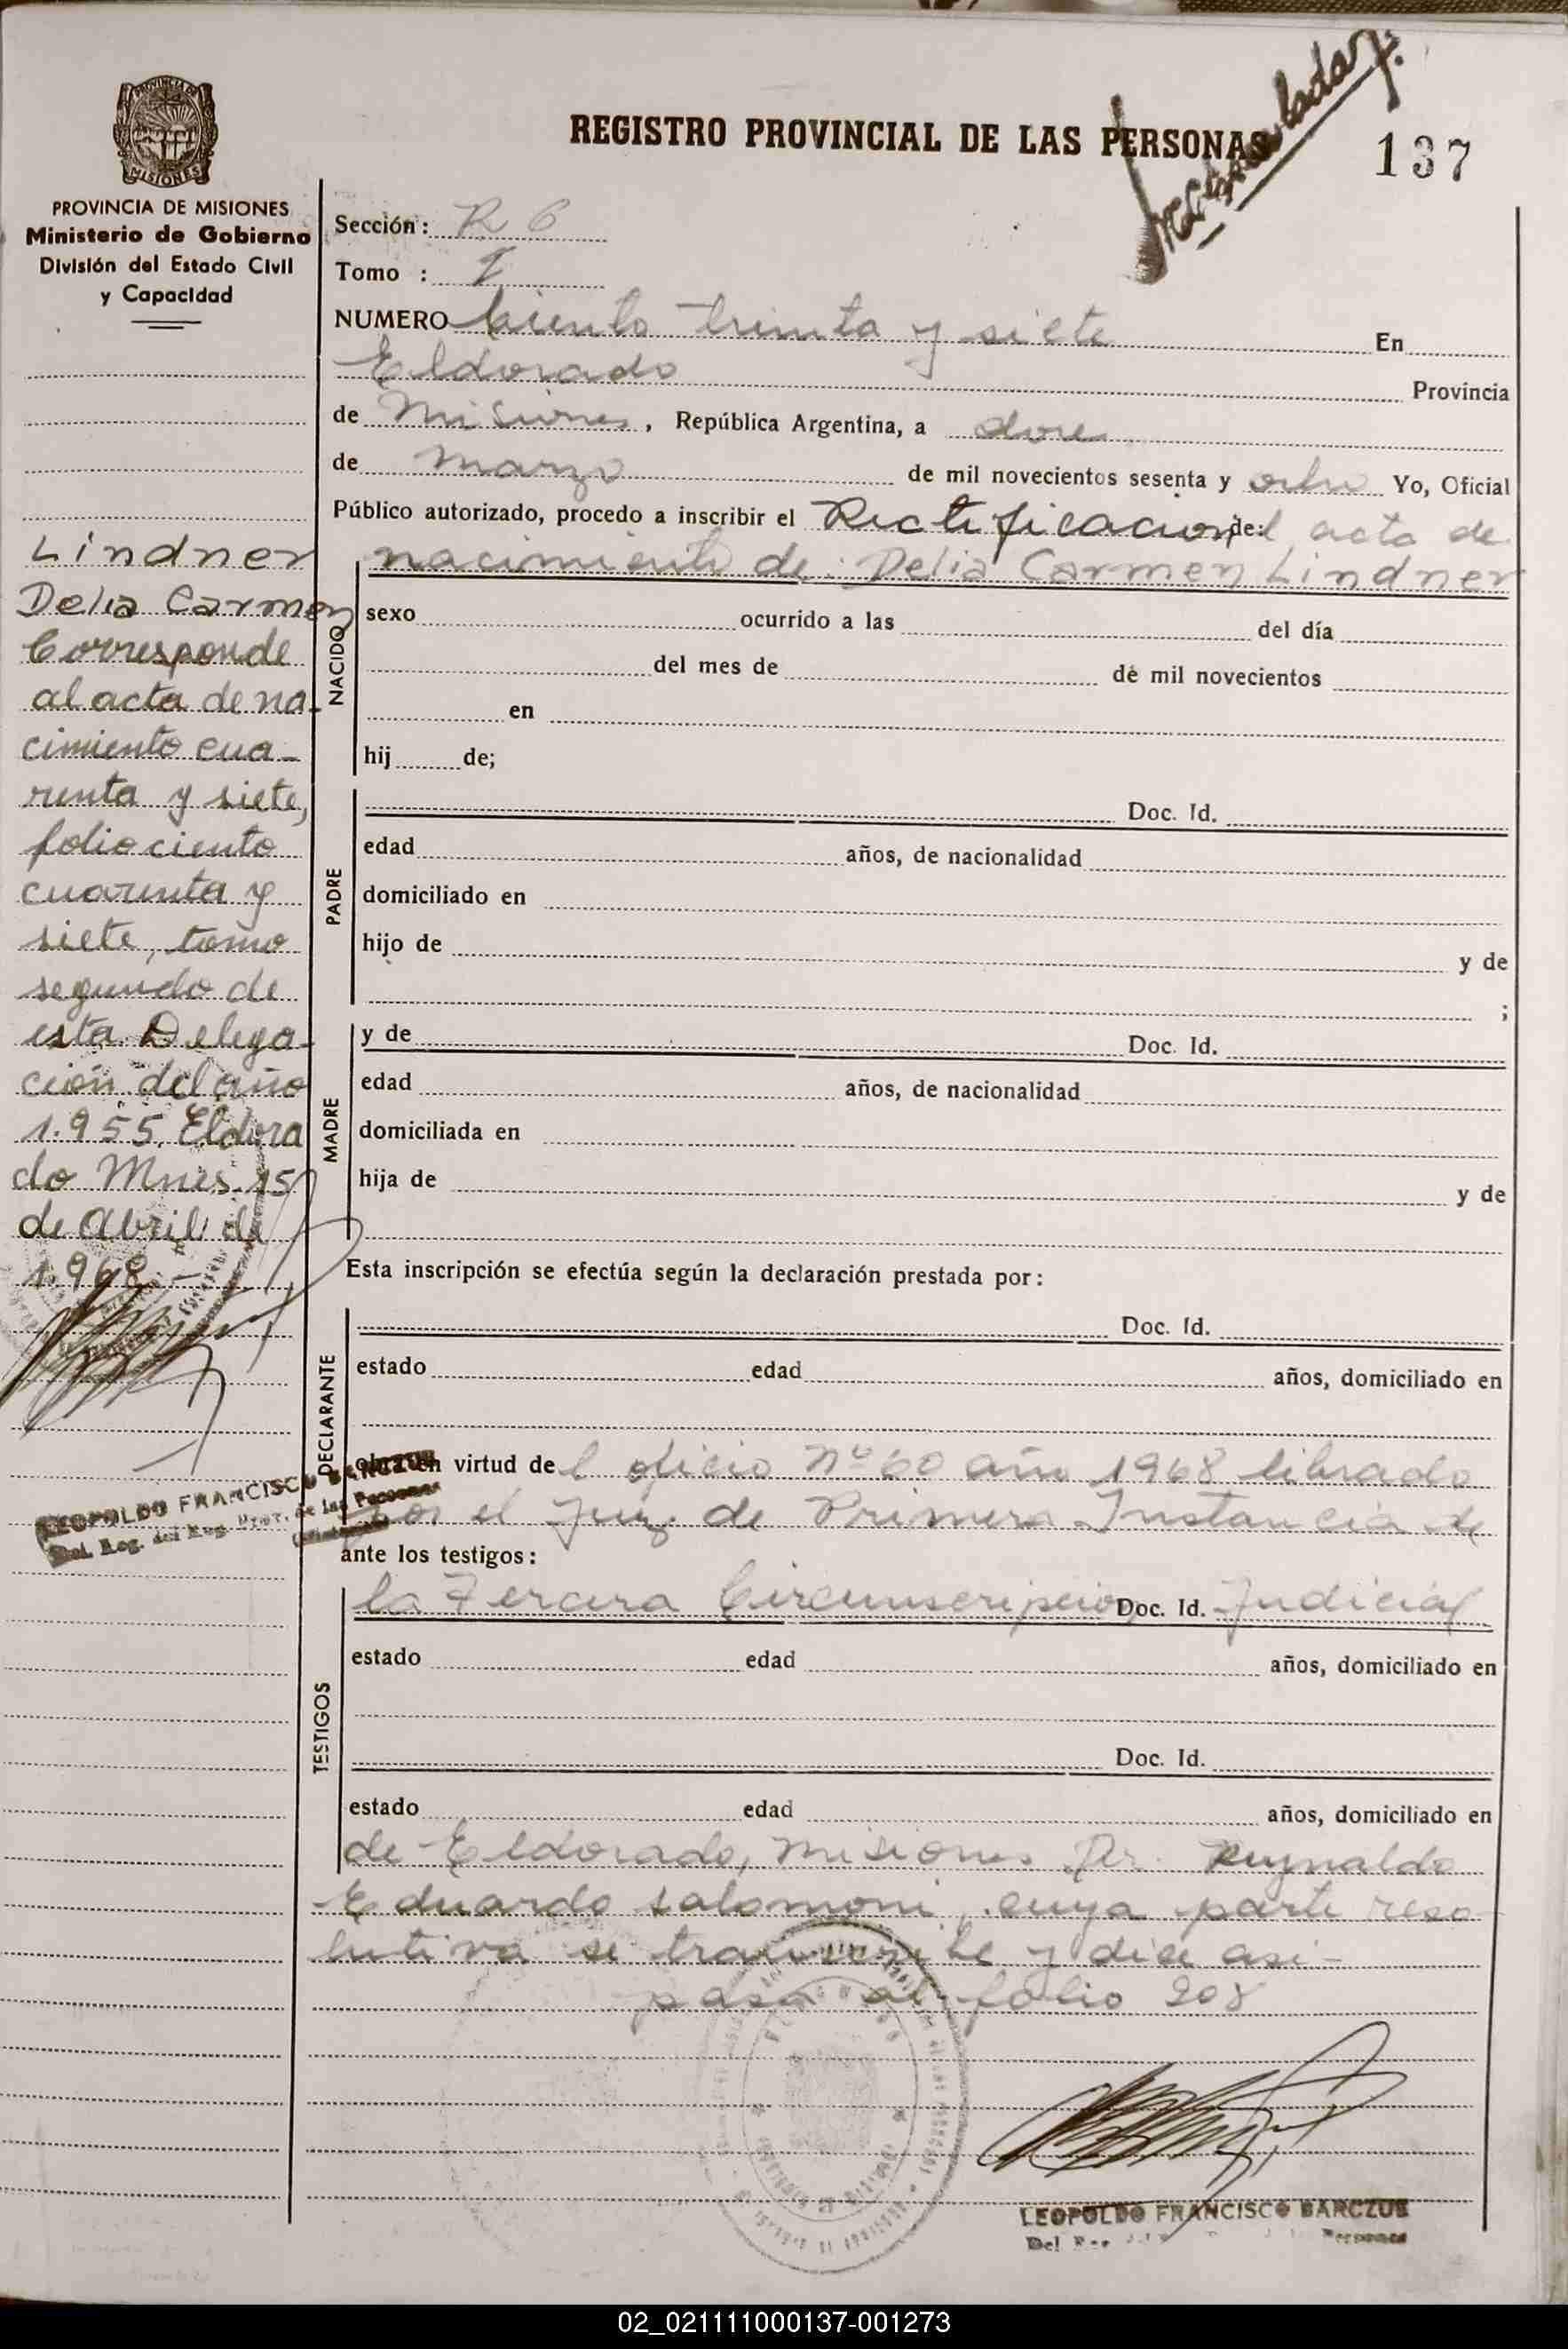 REGISTRO PROVINCIAL DE LAS PERSONAS
137
PROVINCIA DE MISIONES
Ministerio de Gobierno
División del Estado Civil
y Capacidad
Sección: R 6
Tomo : I
NUMERO Ciento treinta y siete En
Eldorado Provincia
de Misiones, República Argentina, a doce
de marzo de mil novecientos sesenta y ocho Yo, Oficial
Público autorizado, procedo a inscribir el Rectificacion de: l acta de
nacimiento de: Delia Carmen Lindner
NACIDO
sexo ocurrido a las del día
del mes de de mil novecientos
en
hij de;
PADRE
Doc. Id.
edad años, de nacionalidad
domiciliado en
hijo de y de
;
MADRE
y de Doc. Id.
edad años, de nacionalidad
domiciliada en
hija de y de
Esta inscripción se efectúa según la declaración prestada por:
DECLARANTE
Doc. Id.
estado edad años, domiciliado en
en virtud de l oficio Nº 60 año 1968 librado
por el Juez de Primera Instancia de
ante los testigos:
TESTIGOS
la Tercera Circunscripcion Doc. Id. Judicial
estado edad años, domiciliado en
Doc. Id.
estado edad años, domiciliado en
de Eldorado, Misiones Dr. Reynaldo
Eduardo Salomoni, cuya parte reso
lutiva se transcribe y dice asi-
pasa al folio 208
LEOPOLDO FRANCISCO BARCZUK
Lindner
Delia Carmen
Corresponde
al acta de na-
cimiento cua-
renta y siete,
folio ciento
cuarenta y
siete, tomo
segundo de
esta Delega-
ción del año
1.955. Eldora
do Mnes. 15
de Abril de
1.968.-
LEOPOLDO FRANCISCO BARCZUK
Del. Reg. del Reg. Prov. de las Personas
02_021111000137-001273